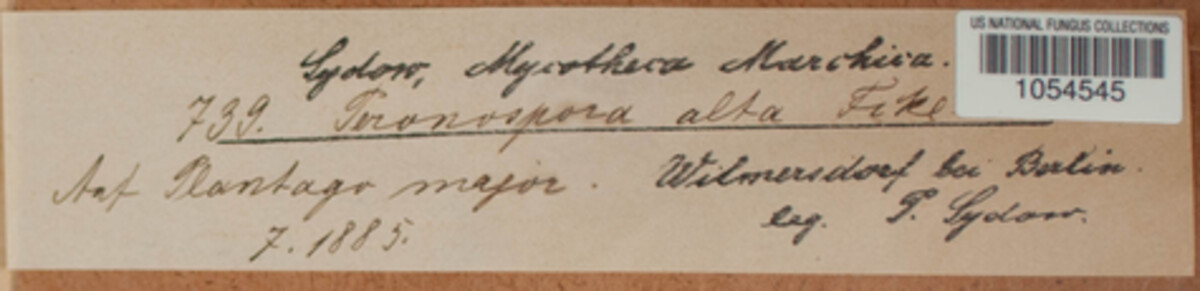 Sydow, Mycotheca Marchica.
US NATIONAL FUNGUS COLLECTIONS
1054545
739. Peronospora alta Fckl.
Auf Plantago major.
Wilmersdorf bei Berlin.
7. 1885.
leg. P. Sydow.